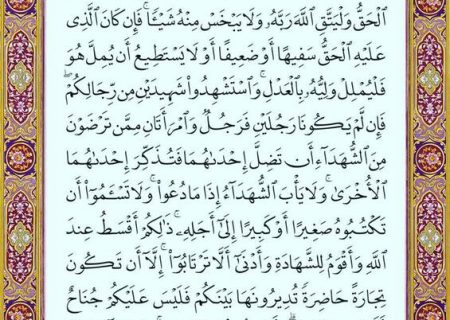 ٱلۡحَقُّ وَلۡيَتَّقِ ٱللَّهَ رَبَّهُۥ وَلَا يَبۡخَسۡ مِنۡهُ شَيۡـٔٗاۚ فَإِن كَانَ ٱلَّذِي
عَلَيۡهِ ٱلۡحَقُّ سَفِيهًا أَوۡ ضَعِيفًا أَوۡ لَا يَسۡتَطِيعُ أَن يُمِلَّ هُوَ
فَلۡيُمۡلِلۡ وَلِيُّهُۥ بِٱلۡعَدۡلِۚ وَٱسۡتَشۡهِدُواْ شَهِيدَيۡنِ مِن رِّجَالِكُمۡۖ
فَإِن لَّمۡ يَكُونَا رَجُلَيۡنِ فَرَجُلٞ وَٱمۡرَأَتَانِ مِمَّن تَرۡضَوۡنَ
مِنَ ٱلشُّهَدَآءِ أَن تَضِلَّ إِحۡدَىٰهُمَا فَتُذَكِّرَ إِحۡدَىٰهُمَا
ٱلۡأُخۡرَىٰۚ وَلَا يَأۡبَ ٱلشُّهَدَآءُ إِذَا مَا دُعُواْۚ وَلَا تَسۡـَٔمُوٓاْ أَن
تَكۡتُبُوهُ صَغِيرًا أَوۡ كَبِيرًا إِلَىٰٓ أَجَلِهِۦۚ ذَٰلِكُمۡ أَقۡسَطُ عِندَ
ٱللَّهِ وَأَقۡوَمُ لِلشَّهَٰدَةِ وَأَدۡنَىٰٓ أَلَّا تَرۡتَابُوٓاْ إِلَّآ أَن تَكُونَ
تِجَٰرَةً حَاضِرَةٗ تُدِيرُونَهَا بَيۡنَكُمۡ فَلَيۡسَ عَلَيۡكُمۡ جُنَاحٌ